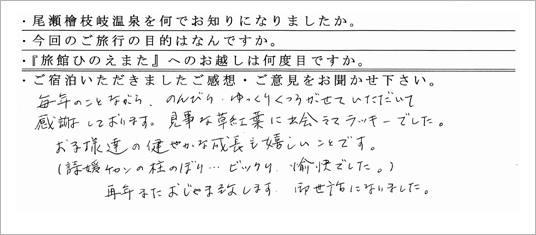 ・尾瀬檜枝岐温泉を何でお知りになりましたか。
・今回のご旅行の目的はなんですか。
・『旅館ひのえまた』へのお越しは何度目ですか。
・ご宿泊いただきましたご感想・ご意見をお聞かせ下さい。
毎年のことながら、のんびり ゆっくりくつろがせていただいて
感謝しております。見事な草紅葉に出会えてラッキーでした。
お子様達の健やかな成長も嬉しいことです。
の柱のぼり… ビックリ 愉快でした。)
再年またおじゃま致します。御世話になりました。